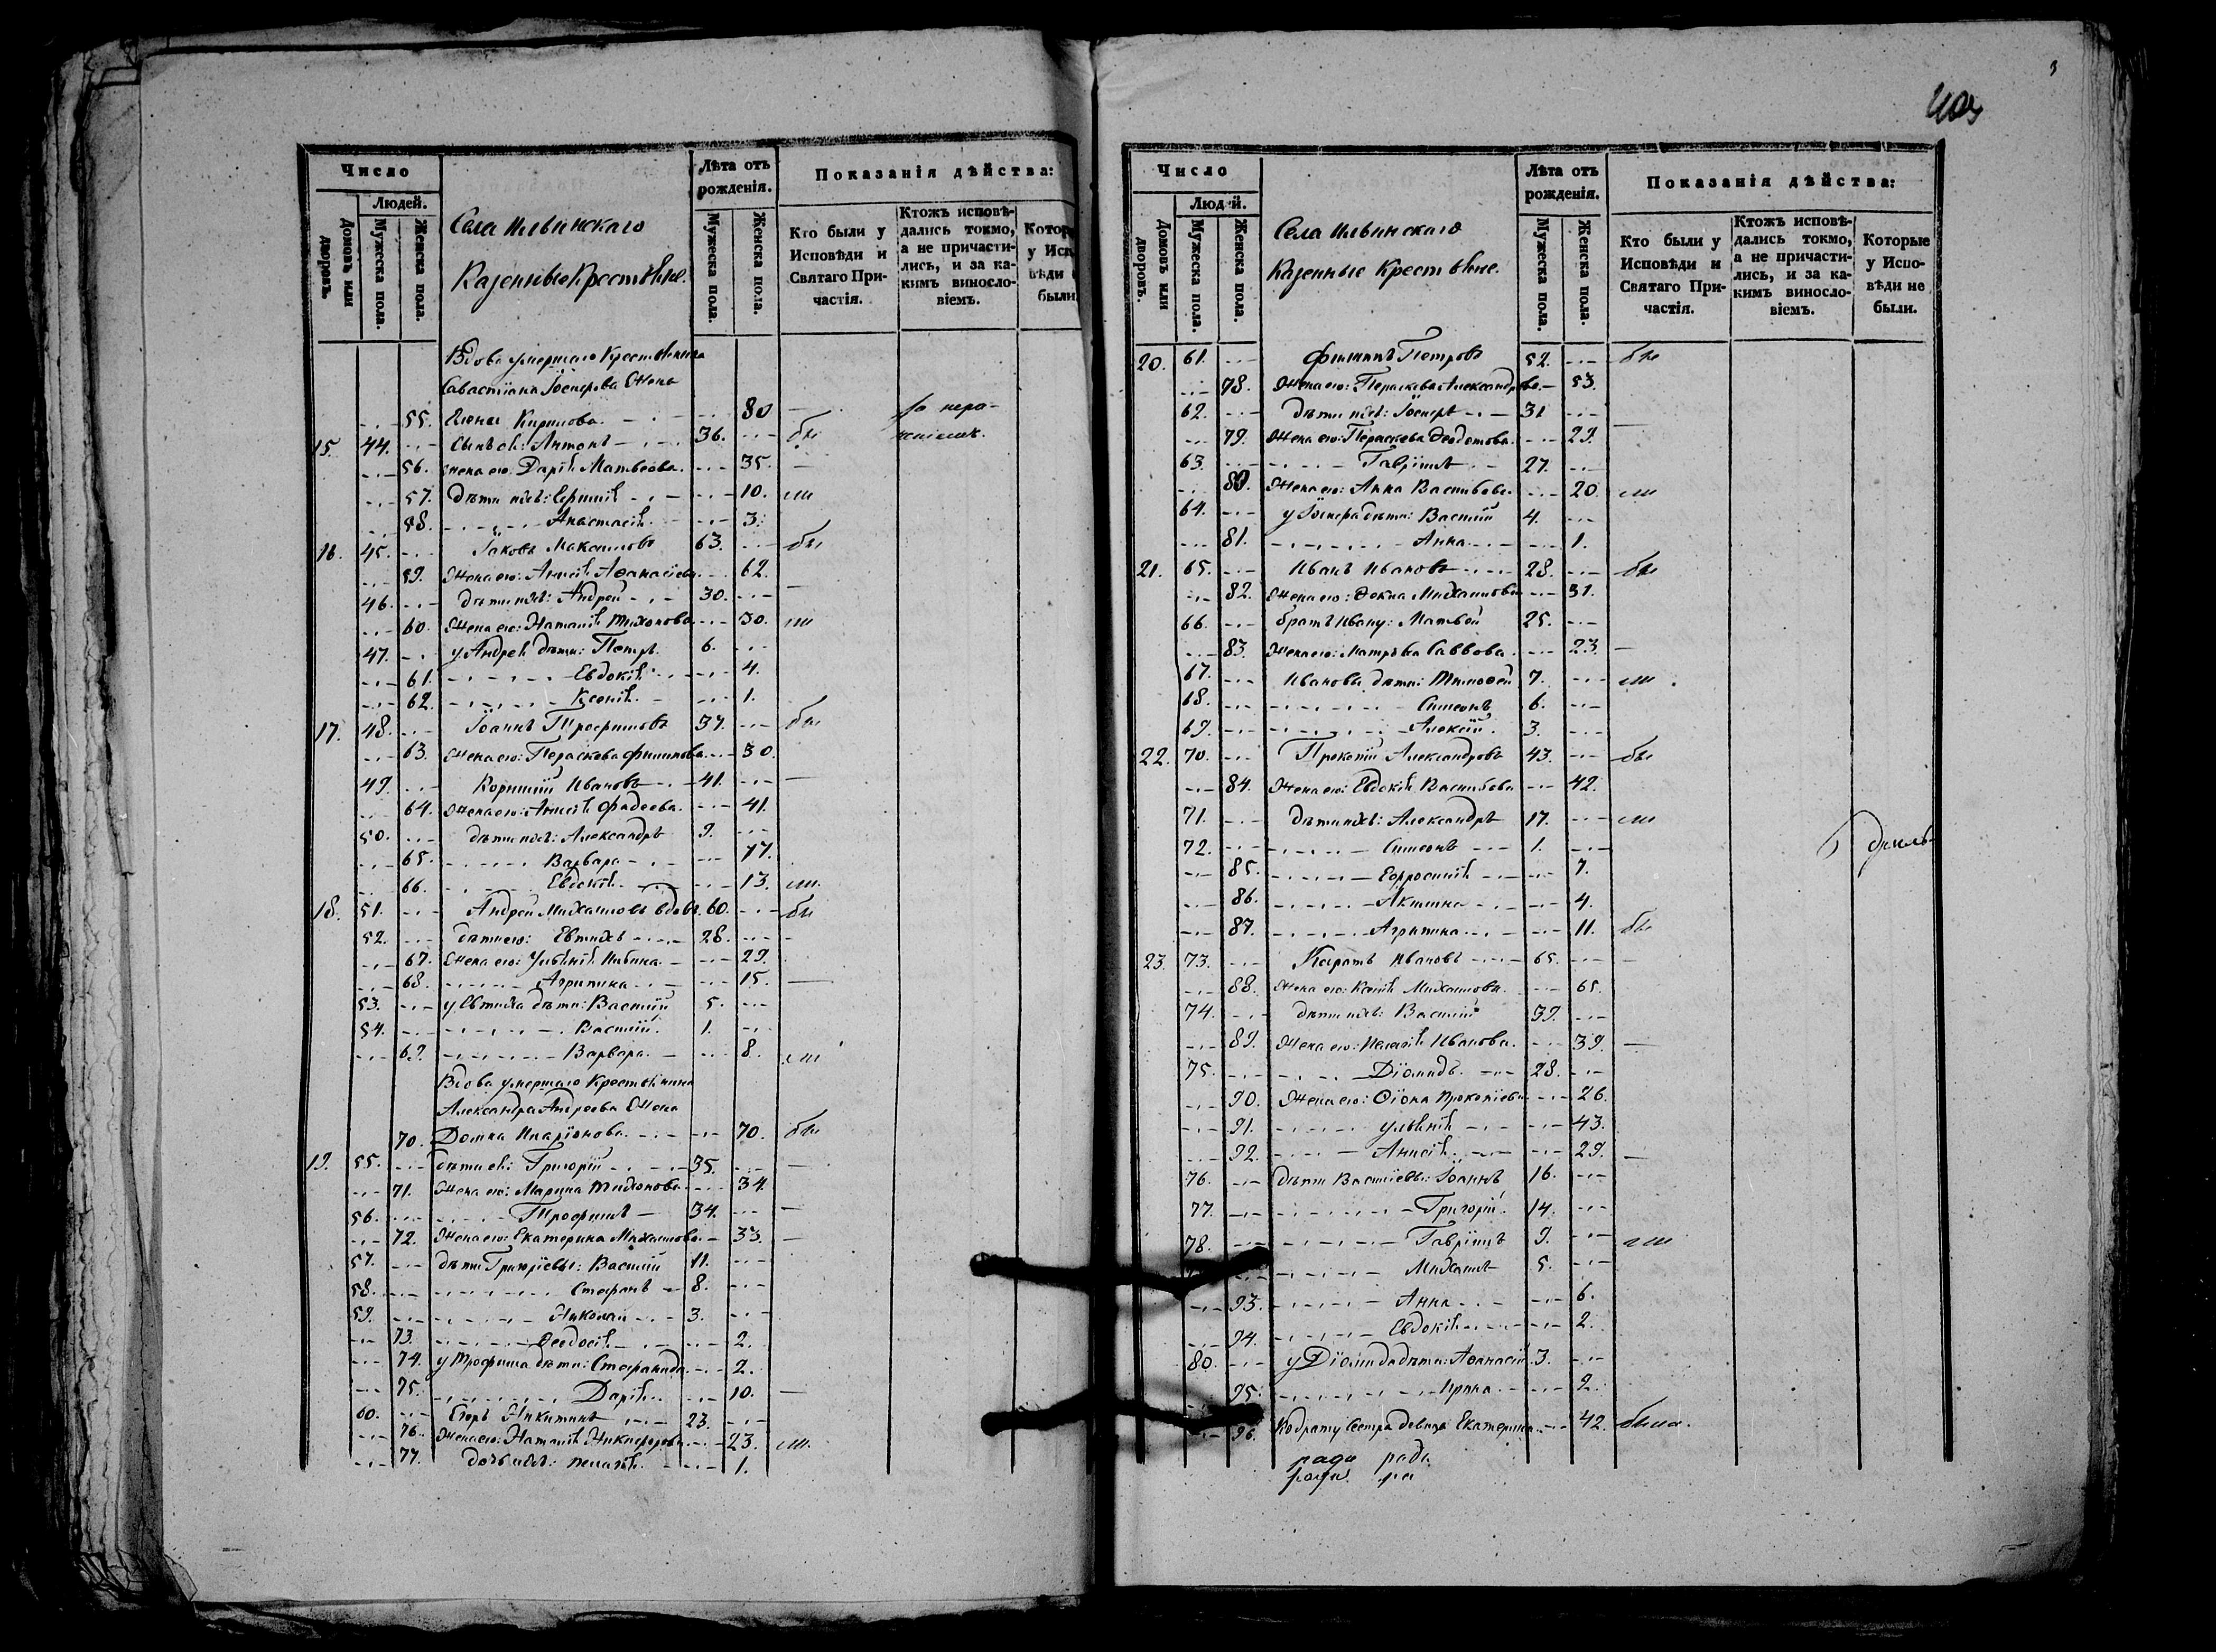 Число
Людей.
Домовъ или дворовъ.
Мужеска пола.
Женска пола.
Села Ильинскаго
Казенные Крестьяне.
Лѣта отъ рожденія.
Мужеска пола.
Женска пола.
Показанія дѣйства:
Кто были у Исповѣди и Святаго Причастія.
Ктожъ исповѣдались токмо, а не причастились, и за какимъ винословіемъ.
Вдова умершаго Крестьянина
Савастіана Іосифова Жена
55. Елена Кирилова. 80
15. 44. Сынъ ея: Антонъ 36. бы
56. Жена его: Дарья Матвеова. 35.
57. Дѣти ихъ: 10. ли
58. Анастасія 3.
16. 45. Іаковъ Максимовъ 63. бы
59. Жена его: Анисія Аѳанасіева 62.
46. дѣти ихъ: Андрей 30.
60. Жена его: Наталія Тихонова 30. ли
47. у Андрея дѣти: Петръ 6.
61. Евдокія 4.
62. Ксенія 1.
17. 48. Іоаннъ Трофимовъ 37. бы
63. Жена его: Параскева Филипова 30.
49. Корнилій Ивановъ 41.
64. Жена его: Анисія Фадеева. 41.
50. дѣти ихъ: Александръ 9.
65. Варвара 17.
66. Евдокія 13. ли
18. 51. Андрей Михаиловъ вдовъ 60. бы
52. дѣти его: Евтихъ 28.
67. Жена его: Ульянія 29.
68. Агрипина 15.
53. у Евтиха дѣти: Василій 5.
54. Василій. 1.
69. Варвара. 8. ли
Вдова умершаго Крестьянина
Александра Андреева Жена
70. Домна Иларіонова. 70. бы
19. 55. дѣти ея: Григорій 35.
71. Жена его: Марина Тихонова 34.
56. Трофимъ 34.
72. Жена его: Екатерина Михаилова 33.
57. дѣти Григоріевы: Василій 11.
58. Стефанъ 8.
59. Николай 3.
73. Ѳеодосія 2.
74. у Трофима дѣти: Стефанида 2.
75. Дарія 10.
60. Егоръ Никитинъ 23.
76. Жена его: Наталія Никифорова 23. ли.
77. дочь ихъ: Пелагія 1.
Число
Людей.
Домовъ или дворовъ.
Мужеска пола.
Женска пола.
Села Ильинскаго
Казенные Крестьяне.
Лѣта отъ рожденія.
Мужеска пола.
Женска пола.
Показанія дѣйства:
Кто были у Исповѣди и Святаго Причастія.
Ктожъ исповѣдались токмо, а не причастились, и за какимъ винословіемъ.
Которые у Исповѣди не были.
20. 61. Филипъ Петровъ 52. бы
78. Жена его: Параскева Александрова 53.
62. дѣти ихъ: Іосифъ 31
79. Жена его: Параскева Ѳеодотова. 29.
63. Гавріилъ 27.
80. Жена его: Анна Васильева 20. ли
64. у Іосифа дѣти: Василій 4.
81. Анна 1.
21. 65. Иванъ Ивановъ 28. бы
82. Жена его: Ѳекла Михаилова 31.
66. братъ Ивану: Матвей 25.
83. Жена его: Матрена Саввова. 23.
67. Ивановы дѣти: Тимоѳей 7. ли
68. Симеонъ 6.
69. Алексій. 3.
22. 70. Прокопій Александровъ 43. бы
84. Жена его: Евдокія Васильева 42.
71. дѣти ихъ: Александръ 17. ли
72. Симеонъ 1.
85. Ефросинія 7.
86. Акилина 4.
87. Агрипина 11. бы
23. 73. Ивановъ 65.
88. Жена его: Ксенія Михаилова 65.
74. дѣти ихъ: Василій 39.
89. Жена его: Пелагія Иванова. 39.
75. Діомидъ 28.
90. Жена его: Прокопіева 26.
91. Ульянія 43.
92. Анисія 29.
76. дѣти Василіевы: Іоаннъ 16.
77. Григорій 14.
78. Гавріилъ 9. ли
Михаилъ 5.
93. Анна 6.
94. Евдокія 2.
80. у Діомида дѣти: Аѳанасій 3.
95. Ирина 2.
96. Кодрату Сестра девица Екатерина 42. была.
ради ради